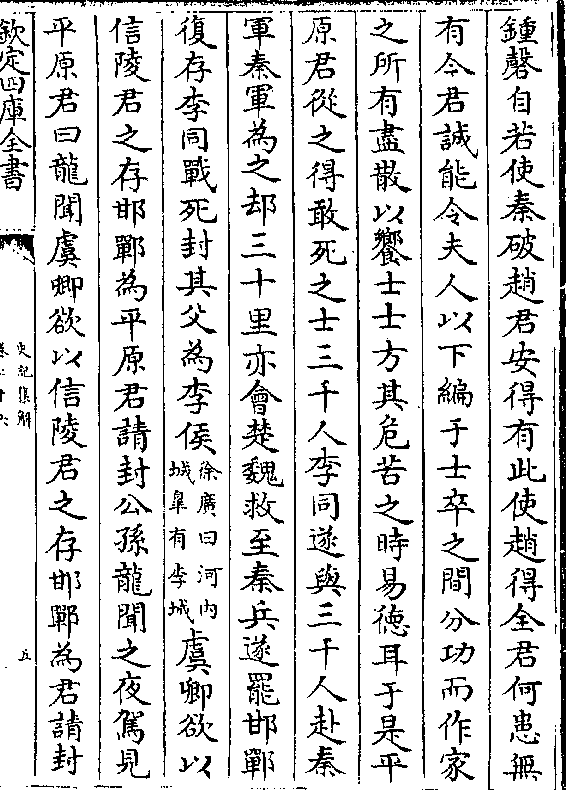 鍾磬自若使秦破趙君安得有此使趙得全君何患無
有今君誠能令夫人以下編于士卒之間分功而作家
之所有盡散以饗士士方其危苦之時易徳耳于是平
原君從之得敢死之士三千人李同遂與三千人赴秦
軍秦軍為之却三十里亦會楚魏救至秦兵遂罷邯鄲
復存李同戰死封其父為李侯徐廣曰河内城臯有李城虞卿欲以
信陵君之存邯鄲為平原君請封公孫龍聞之夜駕見
平原君曰龍聞虞卿欲以信陵君之存邯鄲為君請封
欽定四庫全書
史記集解
五